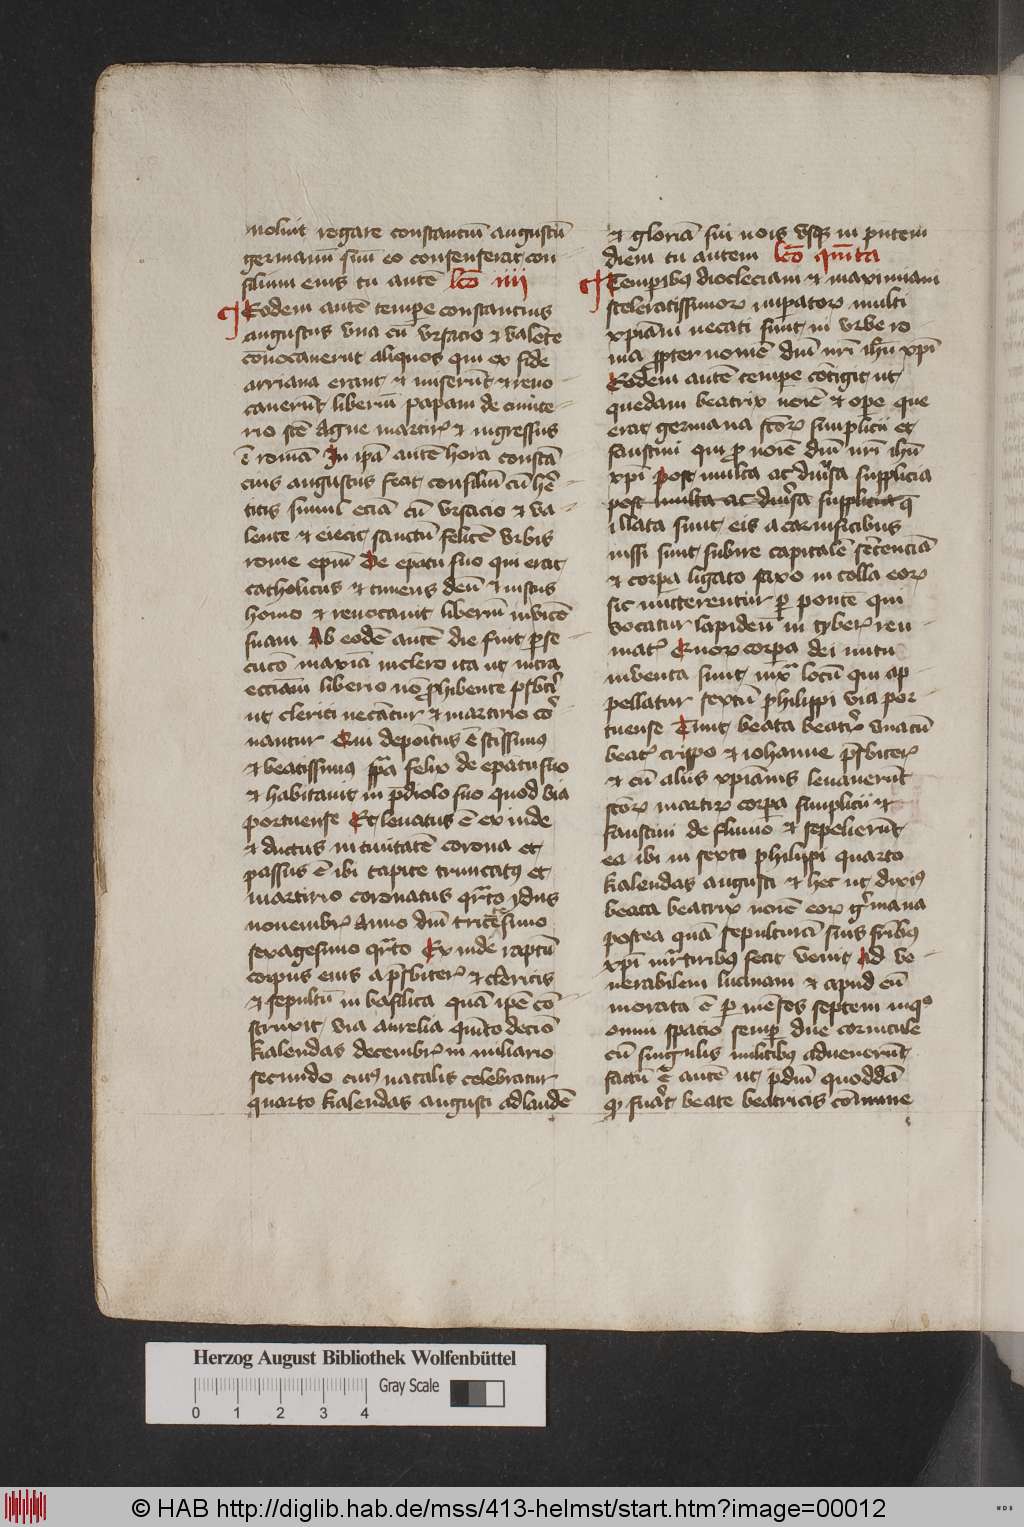 noluit rogare constantiū augustū
germanū suū eo consenserat con
silium eius tu autē lcō iiii
Eodem autē tempe constancius
augustus vna cū vrsacio et valēte
conocauerūt aliquos qui ex fide
arriana erant et miserūt et reuo
cauerūt liberiū papam de cimite
rio scē Agne martiris et ingressus
ē romā In ipā autē hora constā
cius augustus fecit consiliū cū hē
ticis simul eciā cū vrsacio et va
lente et eiecit sanctū felicē vrbis
rome epm̄ De epatu suo qui erat
catholicus et timens deū et iustus
homo et reuocauit liberiū in vicē
suam Ab eodē autē die fuit perse
cucō maxīa in clero ita ut intra
ecciam liberio nō phibente presbiteri
ut clerici necātur et martirio cō
nantur Qui depoītus ē scissimus
et beatissimus papa felix de epatu suo
et habitauit in pdiolo suo quod via
portuense Et leuatus ē ex inde
et ductus in ciuitatē corona et
passus ē ibi capite truncatus et
martirio coronatus quarto ydus
nouembris Anno dm̄ tricesimo
sexagesimo quarto Ex inde raptū
corpus eius a presbiteris et clericis
et sepultū in basilica quā ipē cō
struxit via aurelia quinto decio
kalendas decembris in miliario
secundo cuius natalis celebratur
quarto kalendas augusti ad laudē
et gloriā sui nois vsque in pntem
diem tu autem lcō quinta
Temporibus diocleciani et maximiani
sceleratissimorum imperatorum multi
xpiani necati sunt in vrbe ro
ma propter nomē dm̄ nrī ihū xpi
Eodem autē tempe cōtigit ut
quedam beatrix noīe et ope que
erat germana scōrum simplicii et
faustini qui pro noīe dm̄ nrī ihū
xpi post multa ac diuersa supplicia
post multa ac diuersa supplicia que
illata sunt eis a carnificibus
iussi sunt subire capitalē sentenciā
et corpa ligato saxo in colla eorum
sic mitterentur per pontē qui
vocatur lapideū in tyberis reu
mate Quorum corpa dei nutu
inuenta sunt iuxta locū qui ap
pellatur sextū philippi via por
tuense Tunc beata beatrix vnacū
beatis crispo et iohanne presbiteris
et cū aliis xpianis leuauerūt
scōrum martirum corpa simplicii et
faustini de fluuio et sepelierūt
ea ibi in sexto philippi quarto
kalendas augusti et hec ut diximus
beata beatrix noīe eorum germana
postea quā sepulturā suis fribus
xpi martiribus fecit venit Ad ve
nerabilem lucinam et apud eū
morata ē per menses septem in quo
omni spacio semper due cornicule
cū singulis militibus aduenerūt
factū ē autē ut pdiū quoddā
quod fuerat beate beatricis cōmune
Herzog August Bibliothek Wolfenbüttel
Gray Scale
0 1 2 3 4
© HAB http://diglib.hab.de/mss/413-helmst/start.htm?image=00012